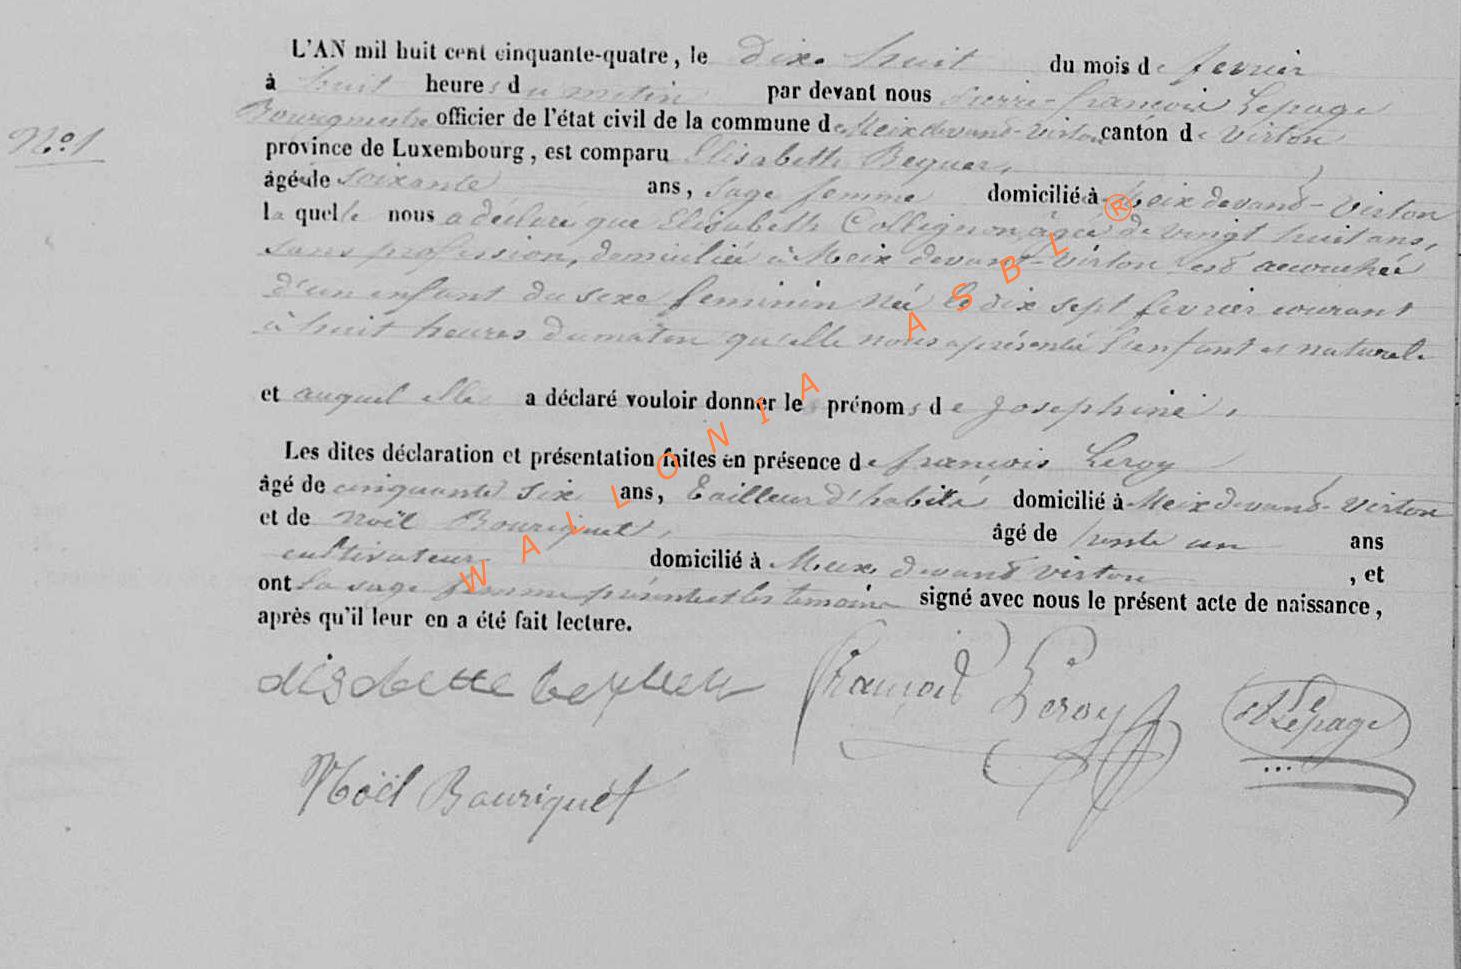 L'AN mil huit cent cinquante-quatre, le dix huit du mois de fevrier
à huit heures du matin par devant nous Pierre-françois Lepage
N.o 1
Bourgmestre officier de l'état civil de la commune de Meix devand-Virton canton de Virton
province de Luxembourg, est comparu Elisabeth
âgée de soixante ans, sage femme domicilié à Meix devand-Virton
laquelle nous a declaré que Elisabeth Collignon, agée de vingt huit ans,
sans profession, domiciliée à Meix devant-Virton est accouchée
d'un enfant du sexe feminin né le dix sept fevrier courant
à huit heures du matin qu'elle nous a présenté l'enfant et naturel
et auquel elle a déclaré vouloir donner les prénoms de Josephine,
Les dites déclaration et présentation faites en présence de françois Leroy
âgé de cinquante six ans, tailleur d'habits domicilié à Meix devand-Virton
et de Noël Bouriquet, âgé de trente un ans
cultivateur domicilié à Meix devand virton, et
ont la sage femme présente et les temoins signé avec nous le présent acte de naissance,
après qu'il leur en a été fait lecture.
François Leroy
Lepage
Noël Bouriquet
WALLONIA ASBL ®